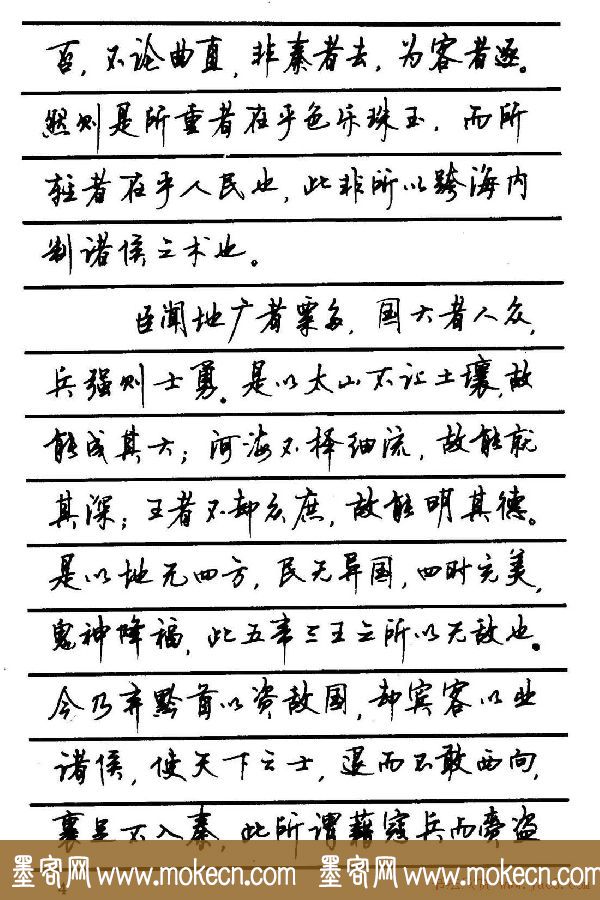 否，不论曲直，非秦者去，为客者逐。
然则是所重者在乎色乐珠玉，而所
轻者在乎人民也，此非所以跨海内
制诸侯之术也。
臣闻地广者粟多，国大者人众，
兵强则士勇。是以太山不让土壤，故
能成其大；河海不择细流，故能就
其深；王者不却众庶，故能明其德。
是以地无四方，民无异国，四时充美，
鬼神降福，此五帝三王之所以无敌也。
今乃弃黔首以资敌国，却宾客以业
诸侯，使天下之士，退而不敢西向，
裹足不入秦，此所谓藉寇兵而赍盗
墨客网 www.mokecn.com 墨客网 www.mokecn.com
4